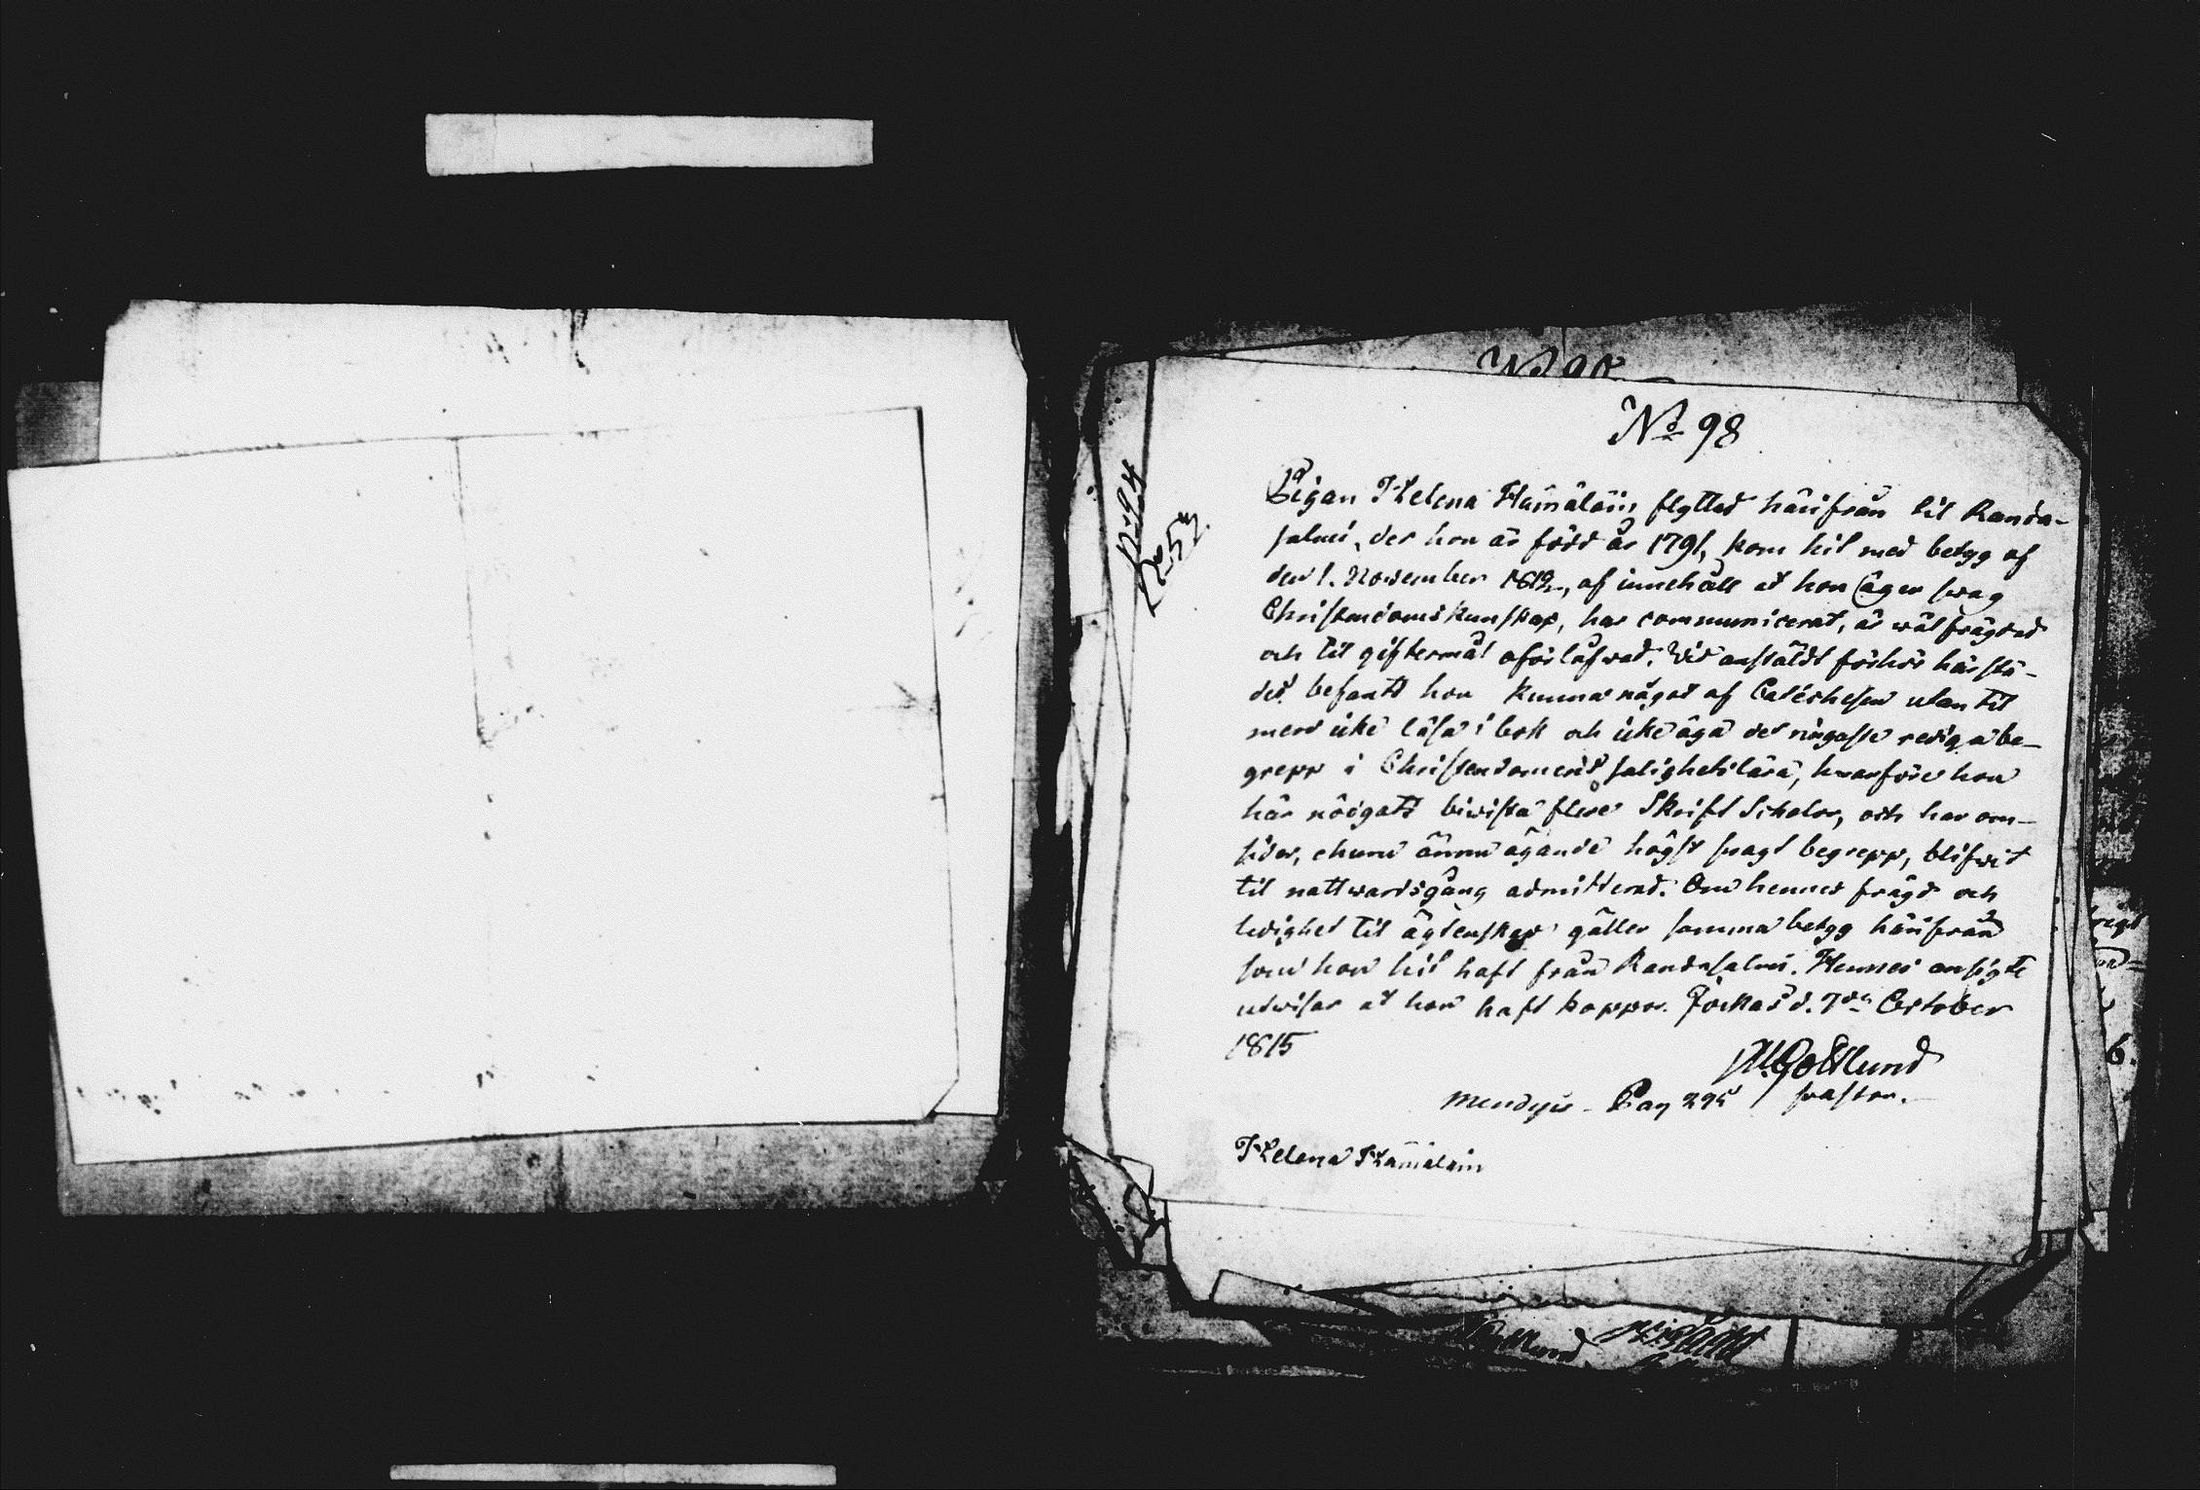 No 98
Pigan Helena Hämäläin flyttad härifrån til Randa-
salmi, der hon är född år 1791, kom hit med betyg af
den 1. November 1812, af innehåll at hon äger swag
Christendomskunskap, har communicerat, är wälfrägdad
och til giftermål oförlåfwad. Wid anstäldt förhör härstä-
des befants hon kunna något af Catechesen utan til
men icke läsa i bok och icke äga det ringaste rediga be-
grepp i Christendomens salighetslära, hwarföre hon
här nödgats biwista flere Skrift Scholor, och har om-
sider, ehuru ännu ägande högst swagt begrepp, blifwit
til nattwardsgång admitterad. Om hennes frägd och
ledighet til ägtenskap gäller samma betyg härifrån
som hon hit haft från Randasalmi. Hennes ansigte
utwisar at hon haft koppor. Jockas d. 7de October
1815
Gottlund
Pag 295
Helena Hämäläin